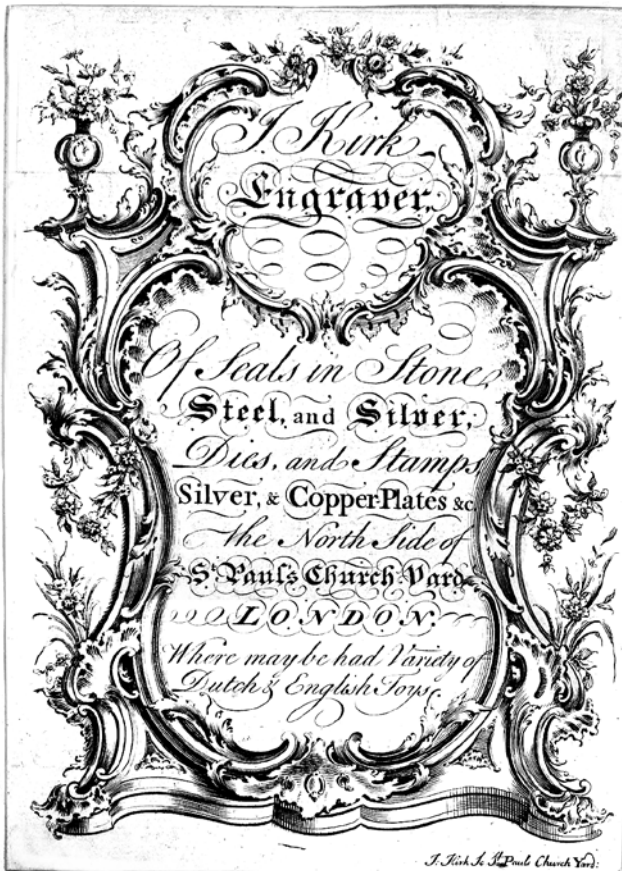 J. Kirk
Engraver,
Of Seals in Stone,
Steel, and Silver,
Dies, and Stamps
Silver, & Copper-Plates &c
the North Side of
St. Paul's Church Yard
LONDON.
Where may be had Variety of
Dutch & English Toys.
J: Kirk Sc St. Pauls Church Yard: